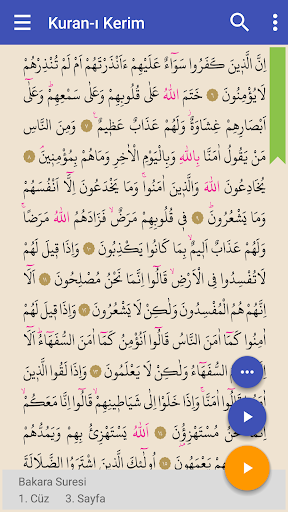 Kuran-ı Kerim
اِنَّ الَّذ۪ينَ كَفَرُوا سَوَٓاءٌ عَلَيْهِمْ ءَاَنْذَرْتَهُمْ اَمْ لَمْ تُنْذِرْهُمْ
لَا يُؤْمِنُونَ ﴿٦﴾ خَتَمَ اللّٰهُ عَلٰى قُلُوبِهِمْ وَعَلٰى سَمْعِهِمْۜ وَعَلٰٓى
اَبْصَارِهِمْ غِشَاوَةٌۘ وَلَهُمْ عَذَابٌ عَظ۪يمٌ۟ ﴿٧﴾ وَمِنَ النَّاسِ
مَنْ يَقُولُ اٰمَنَّا بِاللّٰهِ وَبِالْيَوْمِ الْاٰخِرِ وَمَا هُمْ بِمُؤْمِن۪ينَۢ ﴿٨﴾
يُخَادِعُونَ اللّٰهَ وَالَّذ۪ينَ اٰمَنُواۚ وَمَا يَخْدَعُونَ اِلَّٓا اَنْفُسَهُمْ
وَمَا يَشْعُرُونَۜ ﴿٩﴾ ف۪ي قُلُوبِهِمْ مَرَضٌۙ فَزَادَهُمُ اللّٰهُ مَرَضًاۚ
وَلَهُمْ عَذَابٌ اَل۪يمٌۙ بِمَا كَانُوا يَكْذِبُونَ ﴿١٠﴾ وَاِذَا ق۪يلَ لَهُمْ
لَا تُفْسِدُوا فِي الْاَرْضِۙ قَالُٓوا اِنَّمَا نَحْنُ مُصْلِحُونَ ﴿١١﴾ اَلَٓا
اِنَّهُمْ هُمُ الْمُفْسِدُونَ وَلٰكِنْ لَا يَشْعُرُونَ ﴿١٢﴾ وَاِذَا ق۪يلَ لَهُمْ
اٰمِنُوا كَمَٓا اٰمَنَ النَّاسُ قَالُٓوا اَنُؤْمِنُ كَمَٓا اٰمَنَ السُّفَهَٓاءُۜ اَلَٓا
اِنَّهُمْ هُمُ السُّفَهَٓاءُ وَلٰكِنْ لَا يَعْلَمُونَ ﴿١٣﴾ وَاِذَا لَقُوا الَّذ۪ينَ
اٰمَنُوا قَالُٓوا اٰمَنَّاۚ وَاِذَا خَلَوْا اِلٰى شَيَاط۪ينِهِمْۙ قَالُٓوا اِنَّا مَعَكُمْۙ
اِنَّمَا نَحْنُ مُسْتَهْزِؤُ۫نَ ﴿١٤﴾ اَللّٰهُ يَسْتَهْزِئُ بِهِمْ وَيَمُدُّهُمْ
ف۪ي طُغْيَانِهِمْ يَعْمَهُونَ ﴿١٥﴾ اُو۬لٰٓئِكَ الَّذ۪ينَ اشْتَرَوُا الضَّلَالَةَ
Bakara Suresi
1. Cüz 3. Sayfa